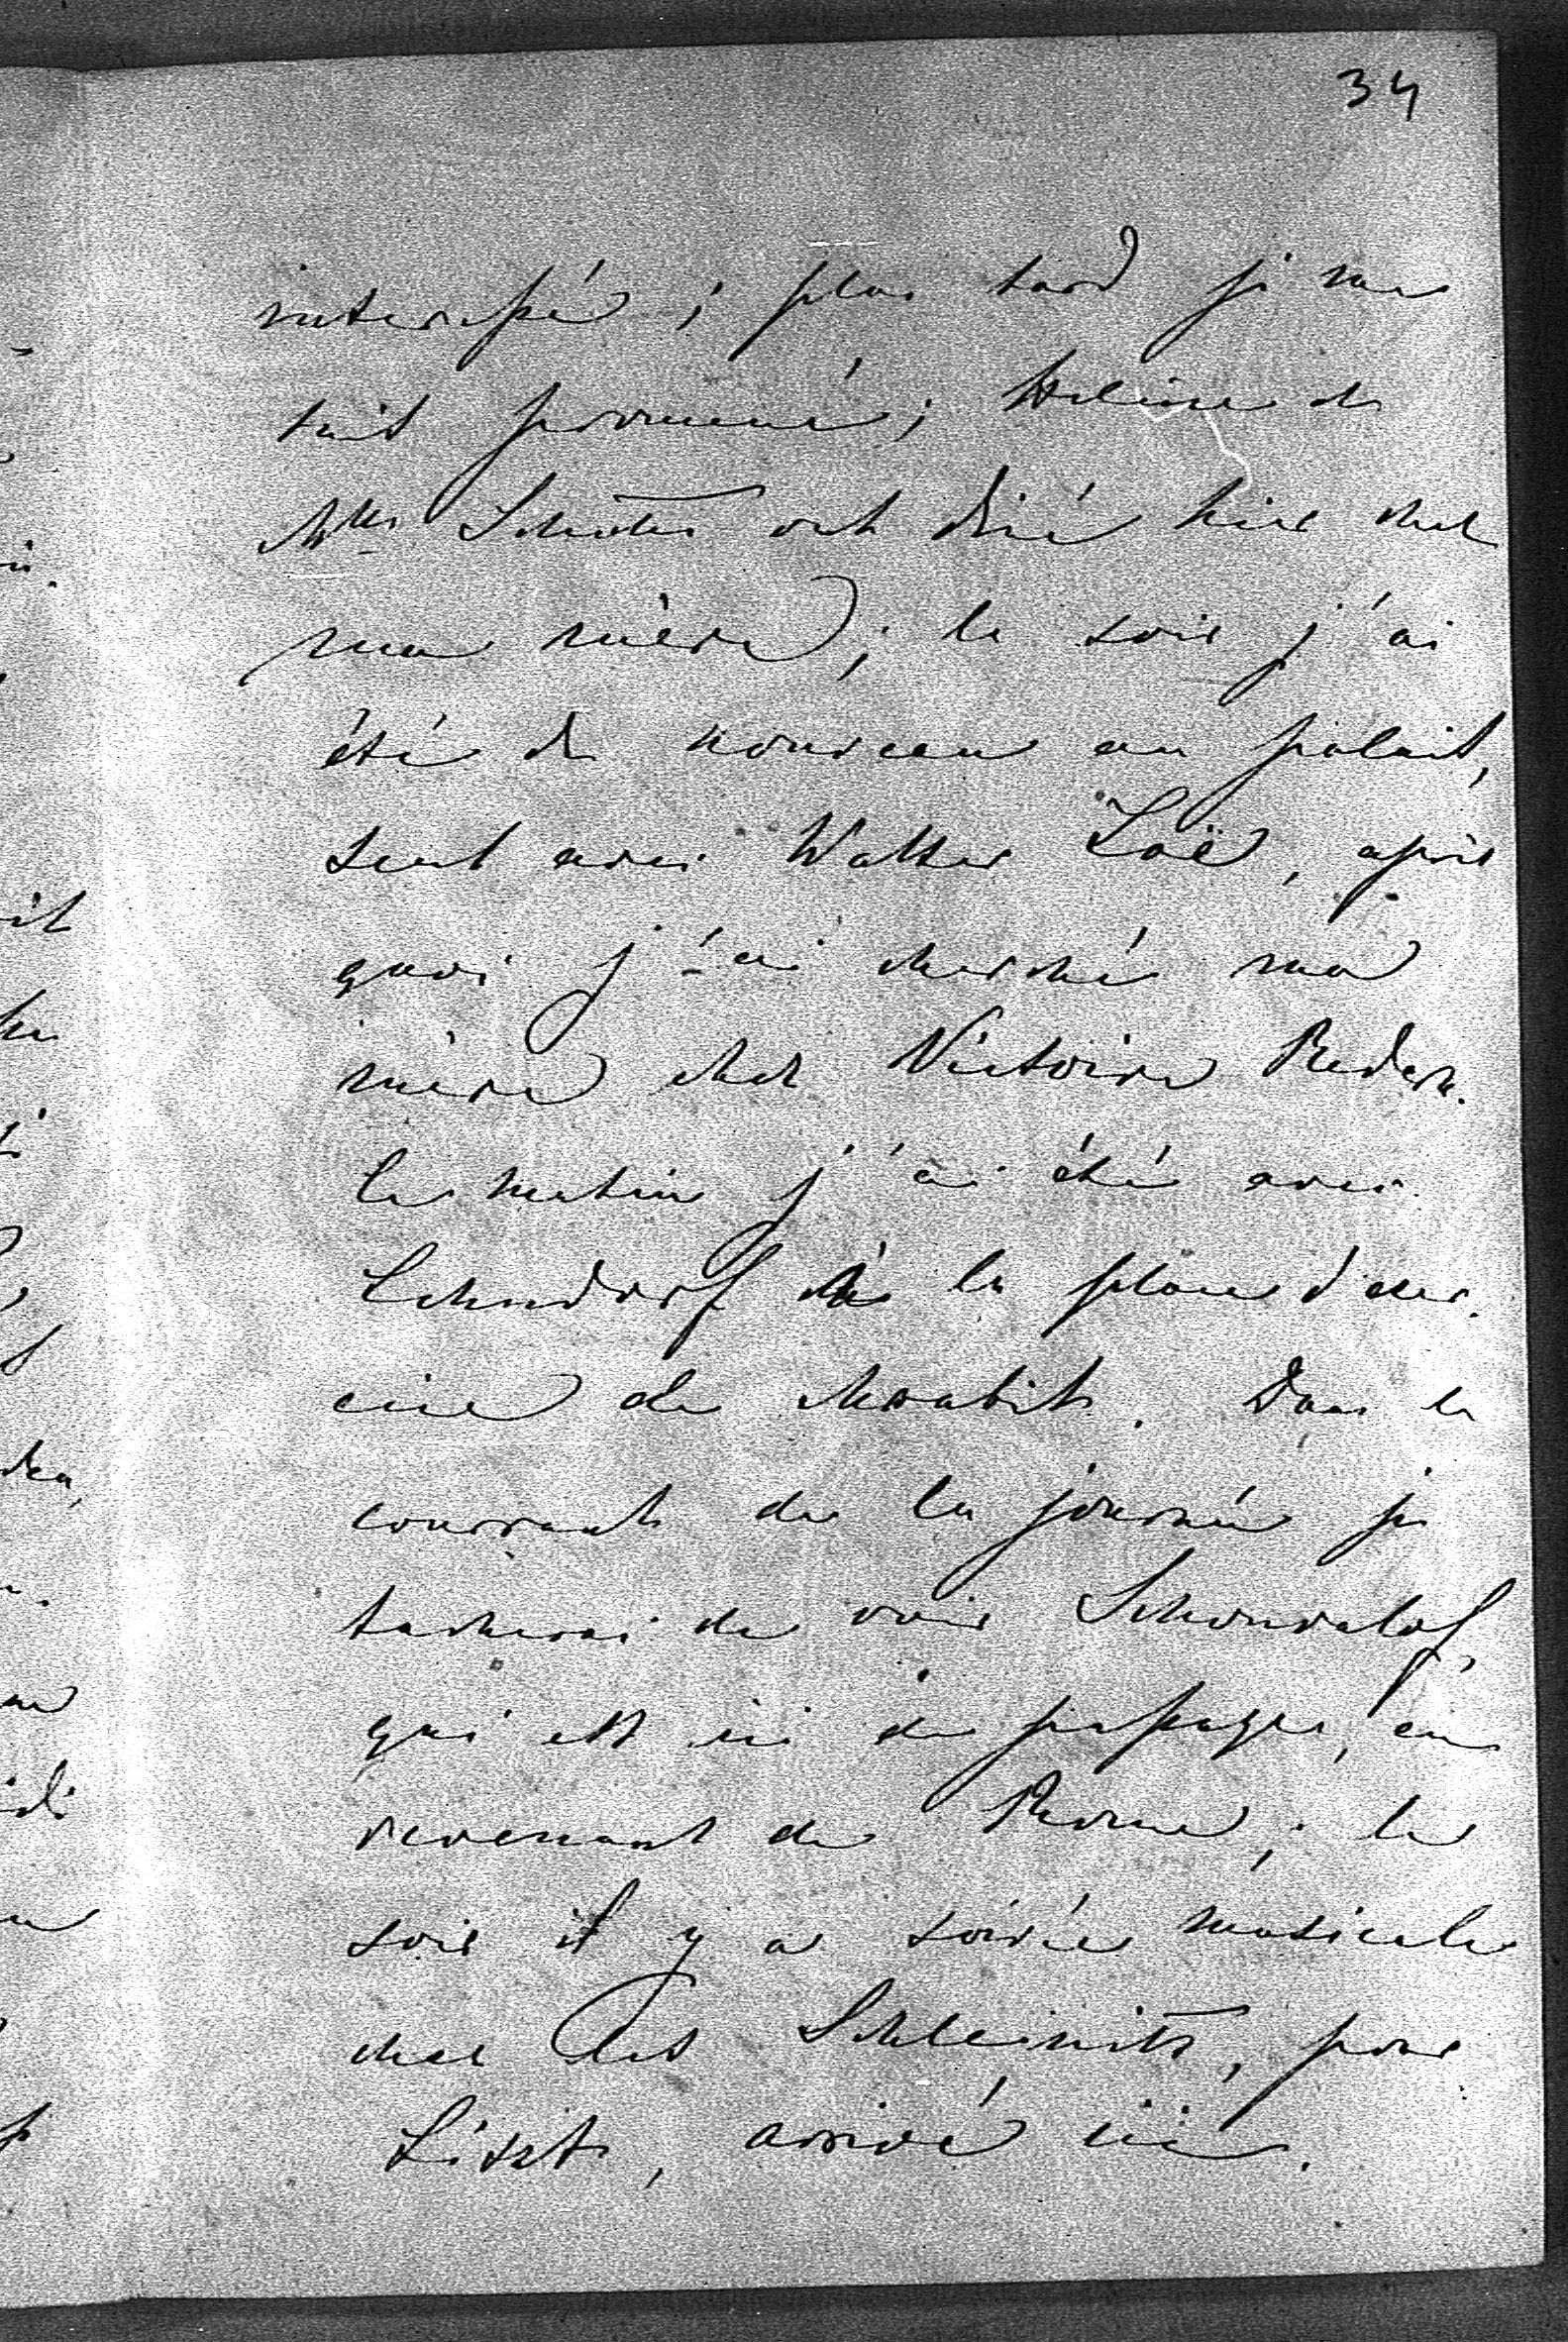 34
interessé ; plus tard je me
suis promené ; Hélène de
Mlle Schultz ont diné hier chez
ma mère ; le soir j'ai
été de nouveau au palais,
seul avec Walter Loë, après
quoi j'ai cherché ma
mère chez Victoire Redern.
Le matin j'ai été avec
Lehndorf à la place d'exer-
cice de Moabit. Dans le
courrant de la journée je
tacherai de voir Schouvalof,
qui est ici de passage, en
revenant de Rome ; le
soir il y a soirée musicale
chez les Schleinitz, pour
Liszt, arrivé ici.